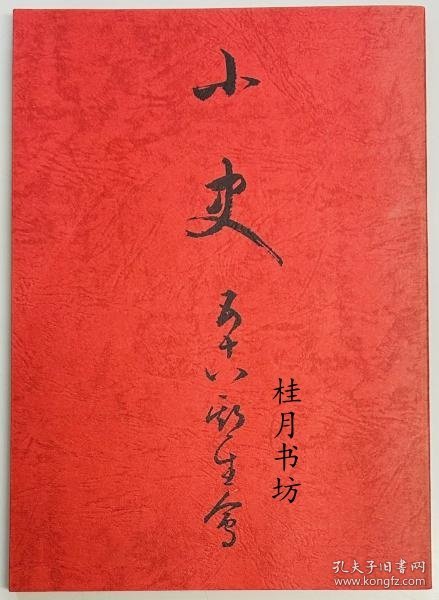 小史
五十八期生會
桂月书坊
孔夫子旧书网
www.kongfz.com